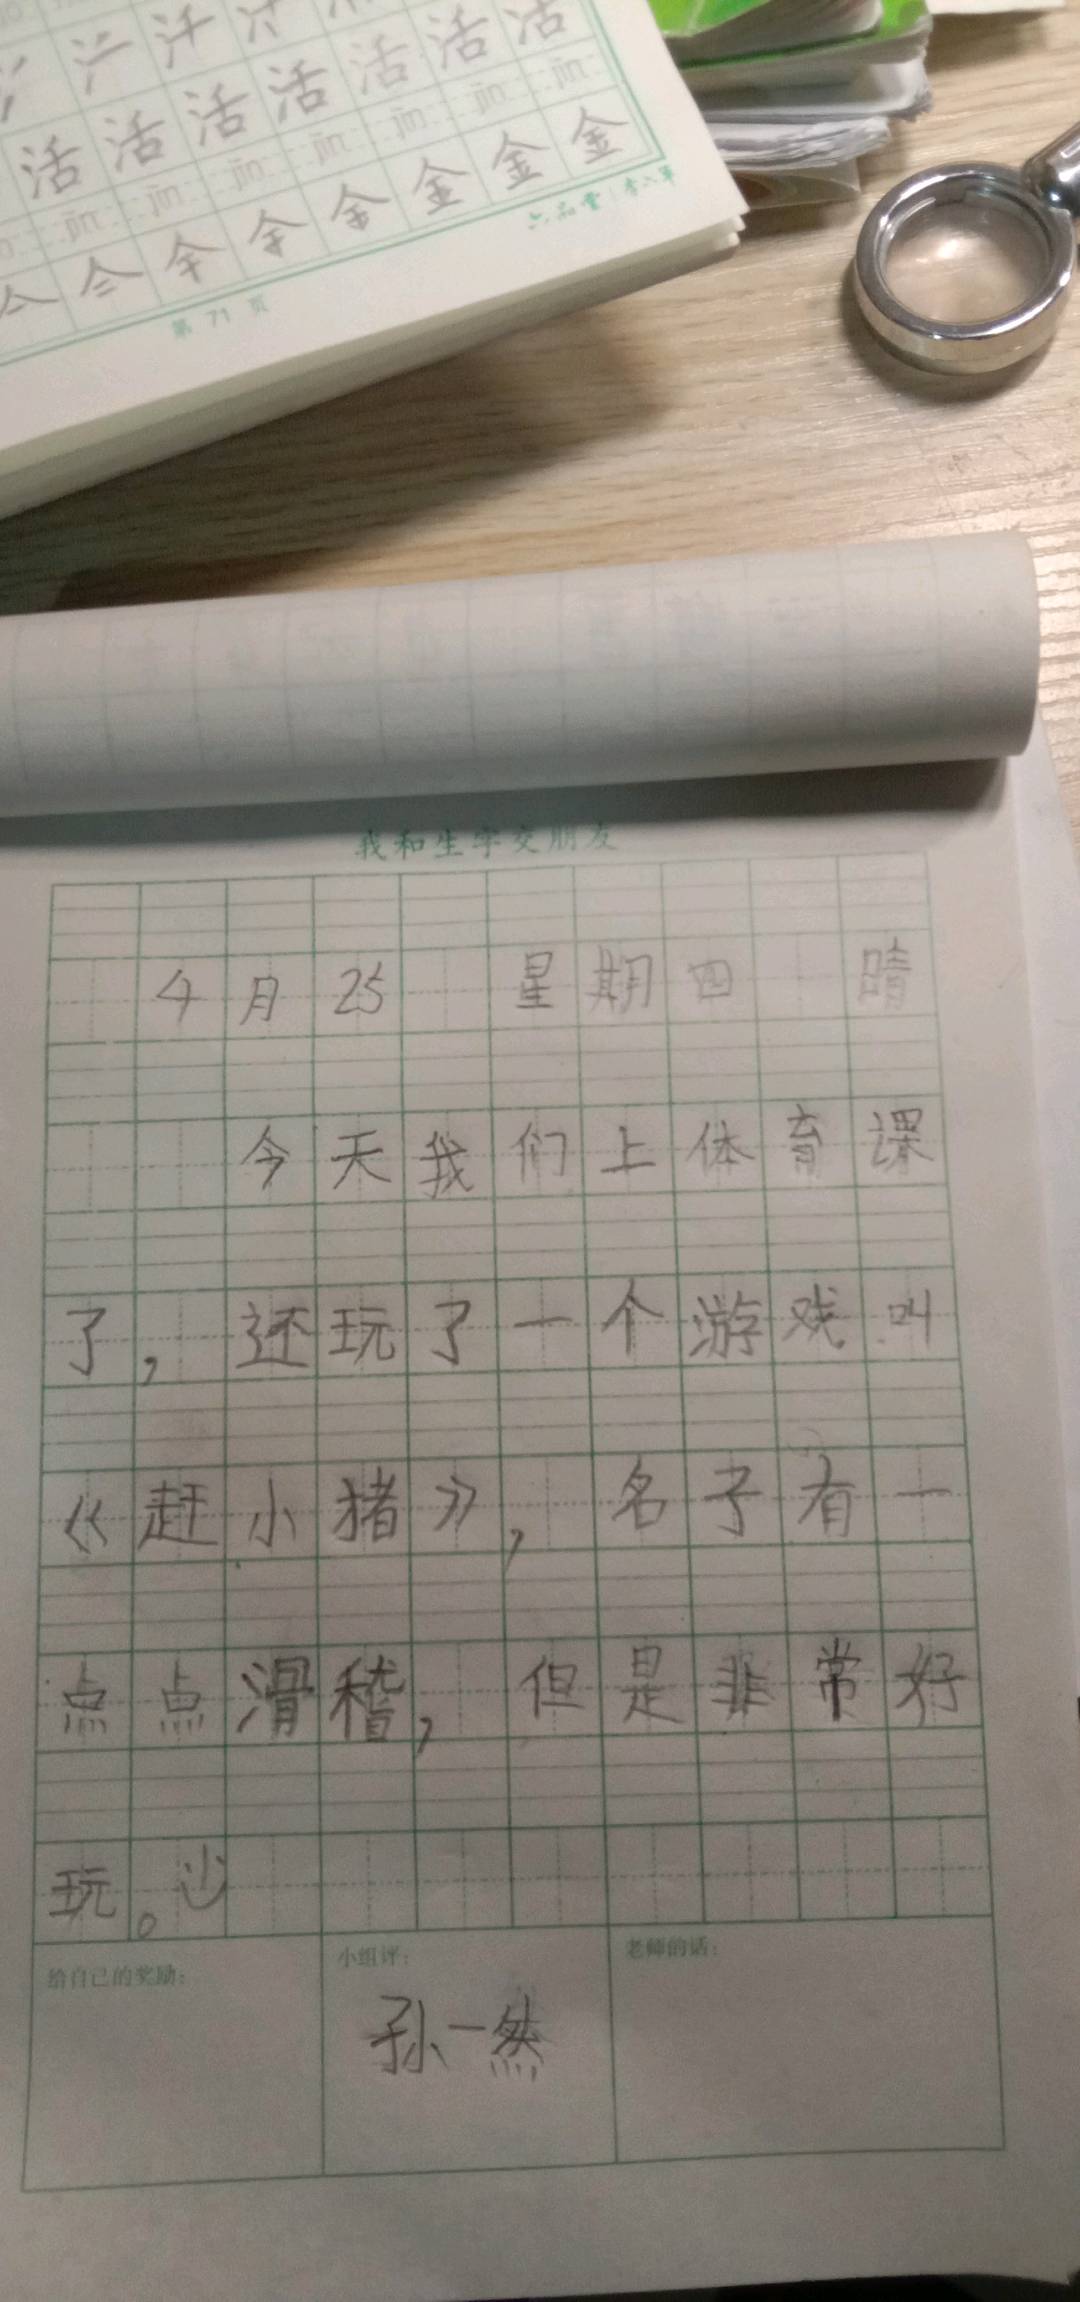 活 活 活 活 活 活 活
jīn jīn jīn jīn jīn jīn
金 金 金
第 71 页
我和生字交朋友
4月25 星期四 晴
今天我们上体育课
了，还玩了一个游戏叫
《赶小猪》，名子有一
点点滑稽，但是非常好
玩。
给自己的奖励：
小组评：
老师的话：
孙一然